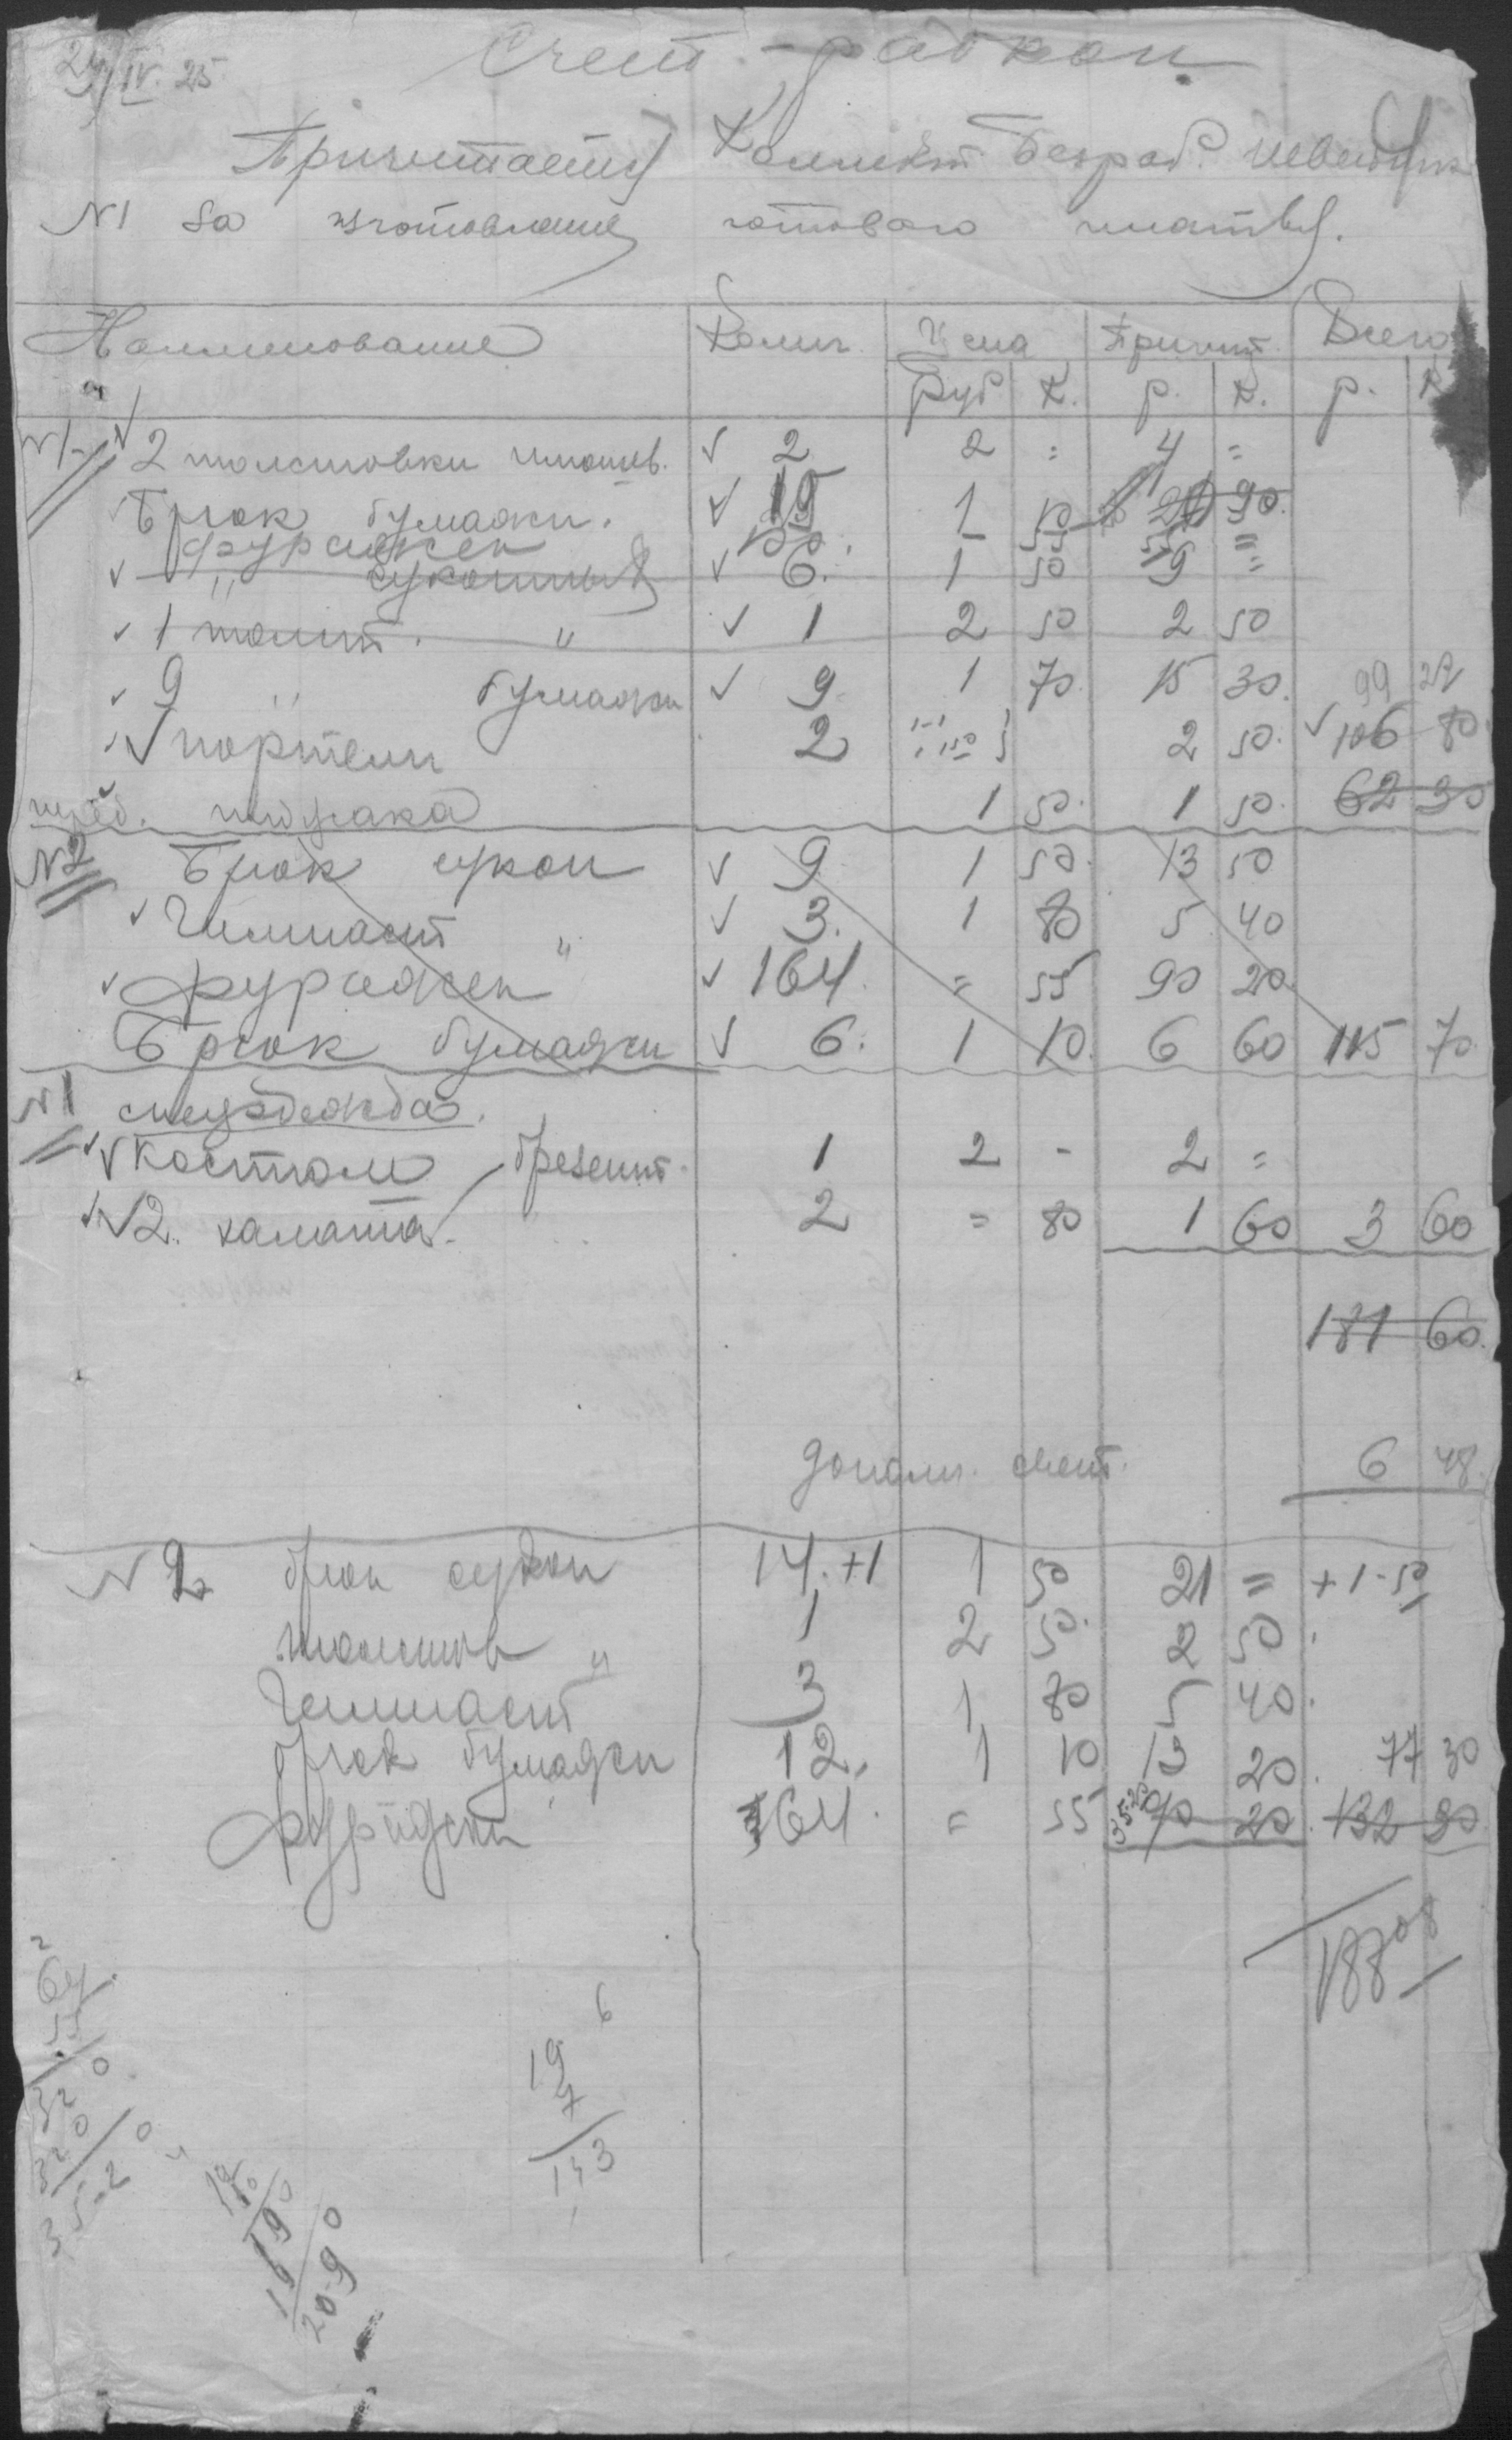 29/IV. 25
Счет-рабкоп.
Причитается Коллект Безраб. швейник
N1 За изготовление готового платья.
Наименование Колич. Цена Причит. Всего
Руб К. р. К. р. К
N1- 2 толстовки √ 2 2 = 4 =
√ Брюк бумажн. √ 19 1 10 20 90
фуражек 100. – 55 55 =
√ " суконных √ 6. 1 50 9 =
√ 1 толст. " √ 1 2 50 2 50
√ 9 " бумажн √ 9 1 70 15 30. 99 20
√ портели 2 2 50. √ 106 80
1 50. 1 50. 62 30
N2 Брюк сукон √ 9. 1 50. 13 50
√ Гимнаст " √ 3. 1 80 5 40
√ фуражек " √ 164. = 55 90 20
Брюк бумажн √ 6. 1 10. 6 60 115 70
N1 спецодежда.
√ Костюм брезент. 1 2 - 2 =
√ 2. халата. 2 = 80 1 60 3 60
181 60.
дополн. счет. 6 48
N 2 брюк сукон 14. +1 1 50 21 = +1-50
толстов " 1 2 50. 2 50.
Гимнаст 3 1 80 5 40.
брюк бумажн 12. 1 10 13 20. 77 30
фуражки 64. = 55 35-20 90 20. 132 30
188 08
2
64.
55
320
320
35-20
6
19
7
133
19
190
19
20-90